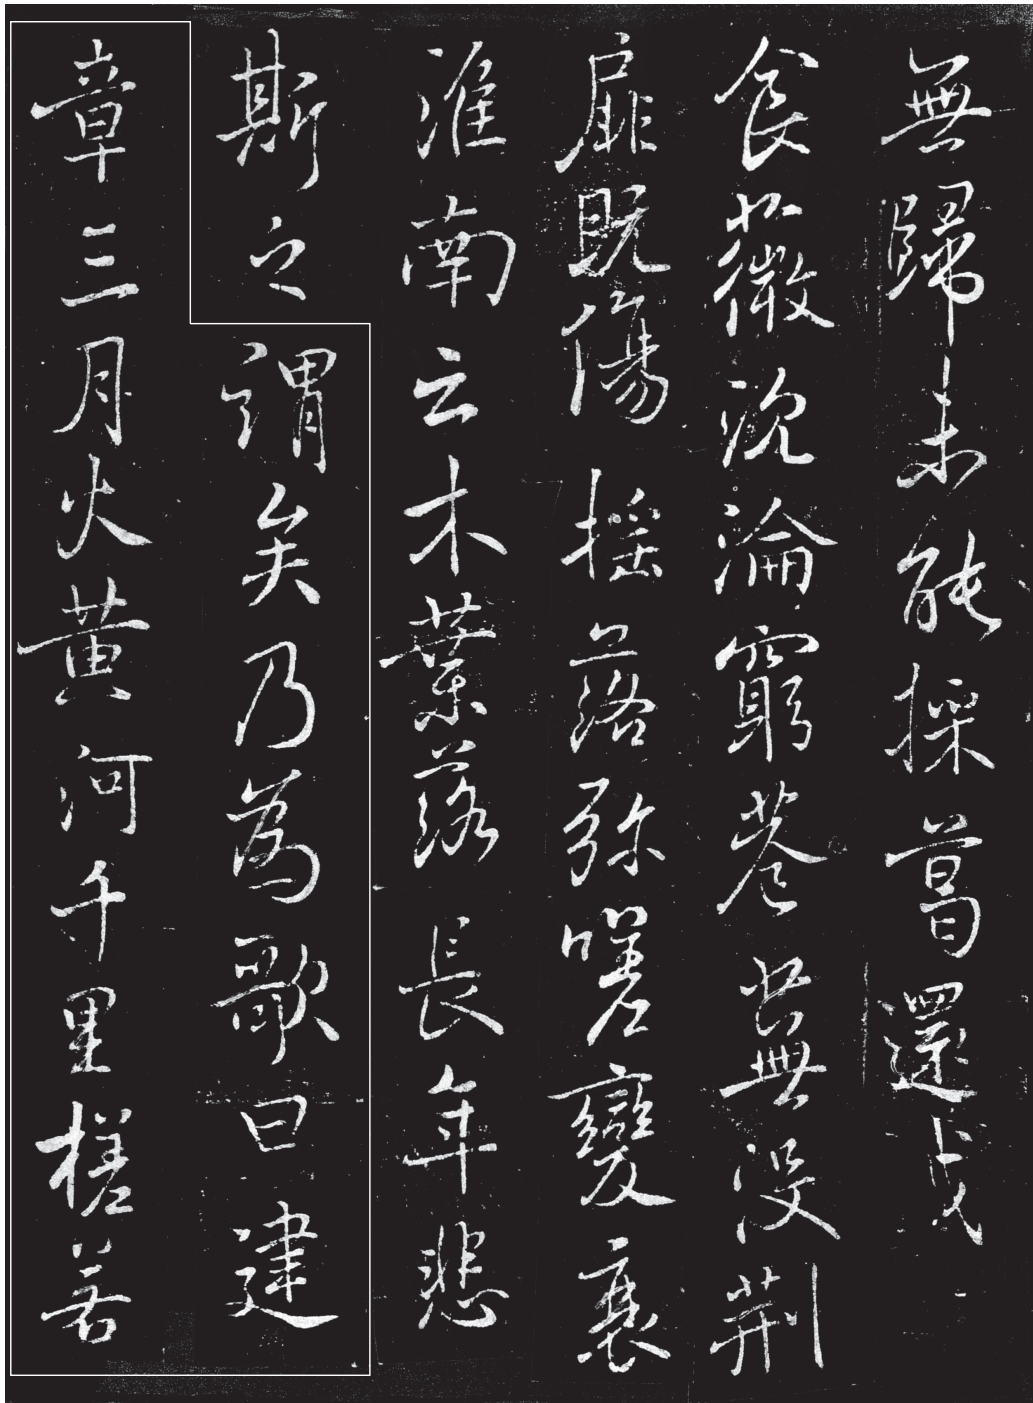 無歸未能採葛還成
食薇沉淪窮巷蕪沒荊
扉既傷搖落弥嗟變衰
淮南云木葉落長年悲
斯之謂矣乃為歌曰建
章三月火黃河千里槎若